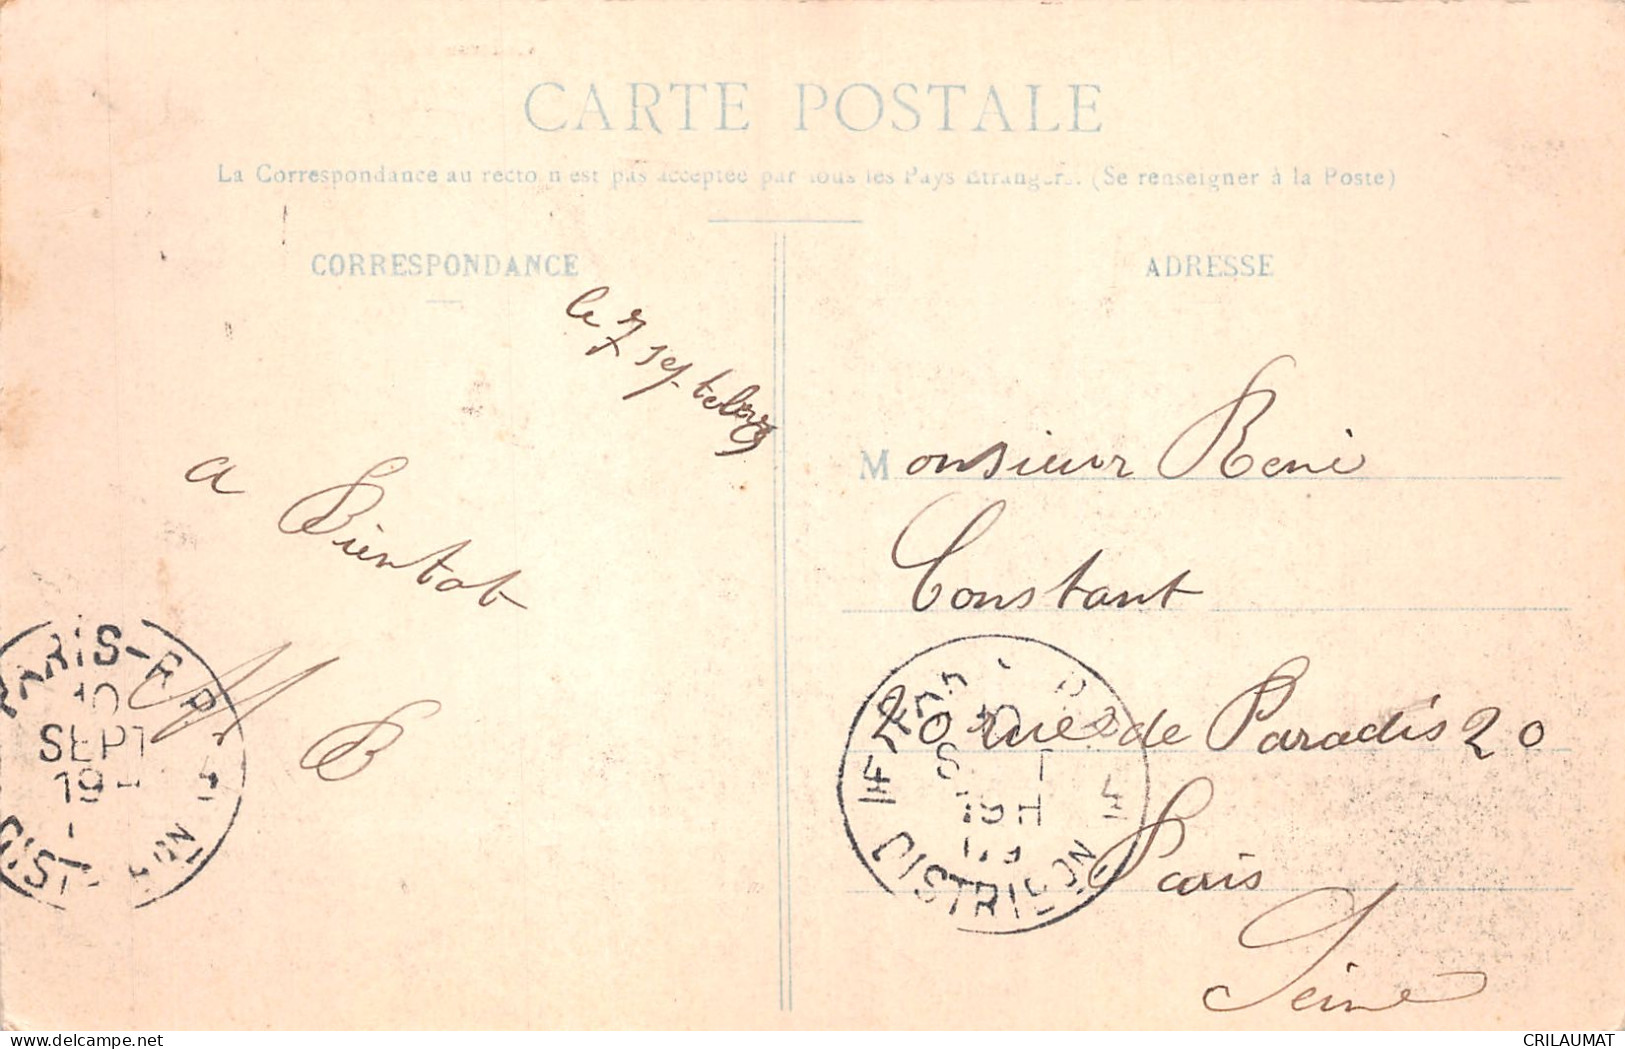 CARTE POSTALE
La Correspondance au recto n'est pas acceptée par tous les Pays Etrangers. (Se renseigner à la Poste)
CORRESPONDANCE
le 7 septembre
a Bientot
B
ADRESSE
Monsieur René
Constant
20 rue de Paradis 20
Paris
Seine
PARIS-
10
SEPT
19
DISTRI
DISTRIBUTION
CRILAUMAT